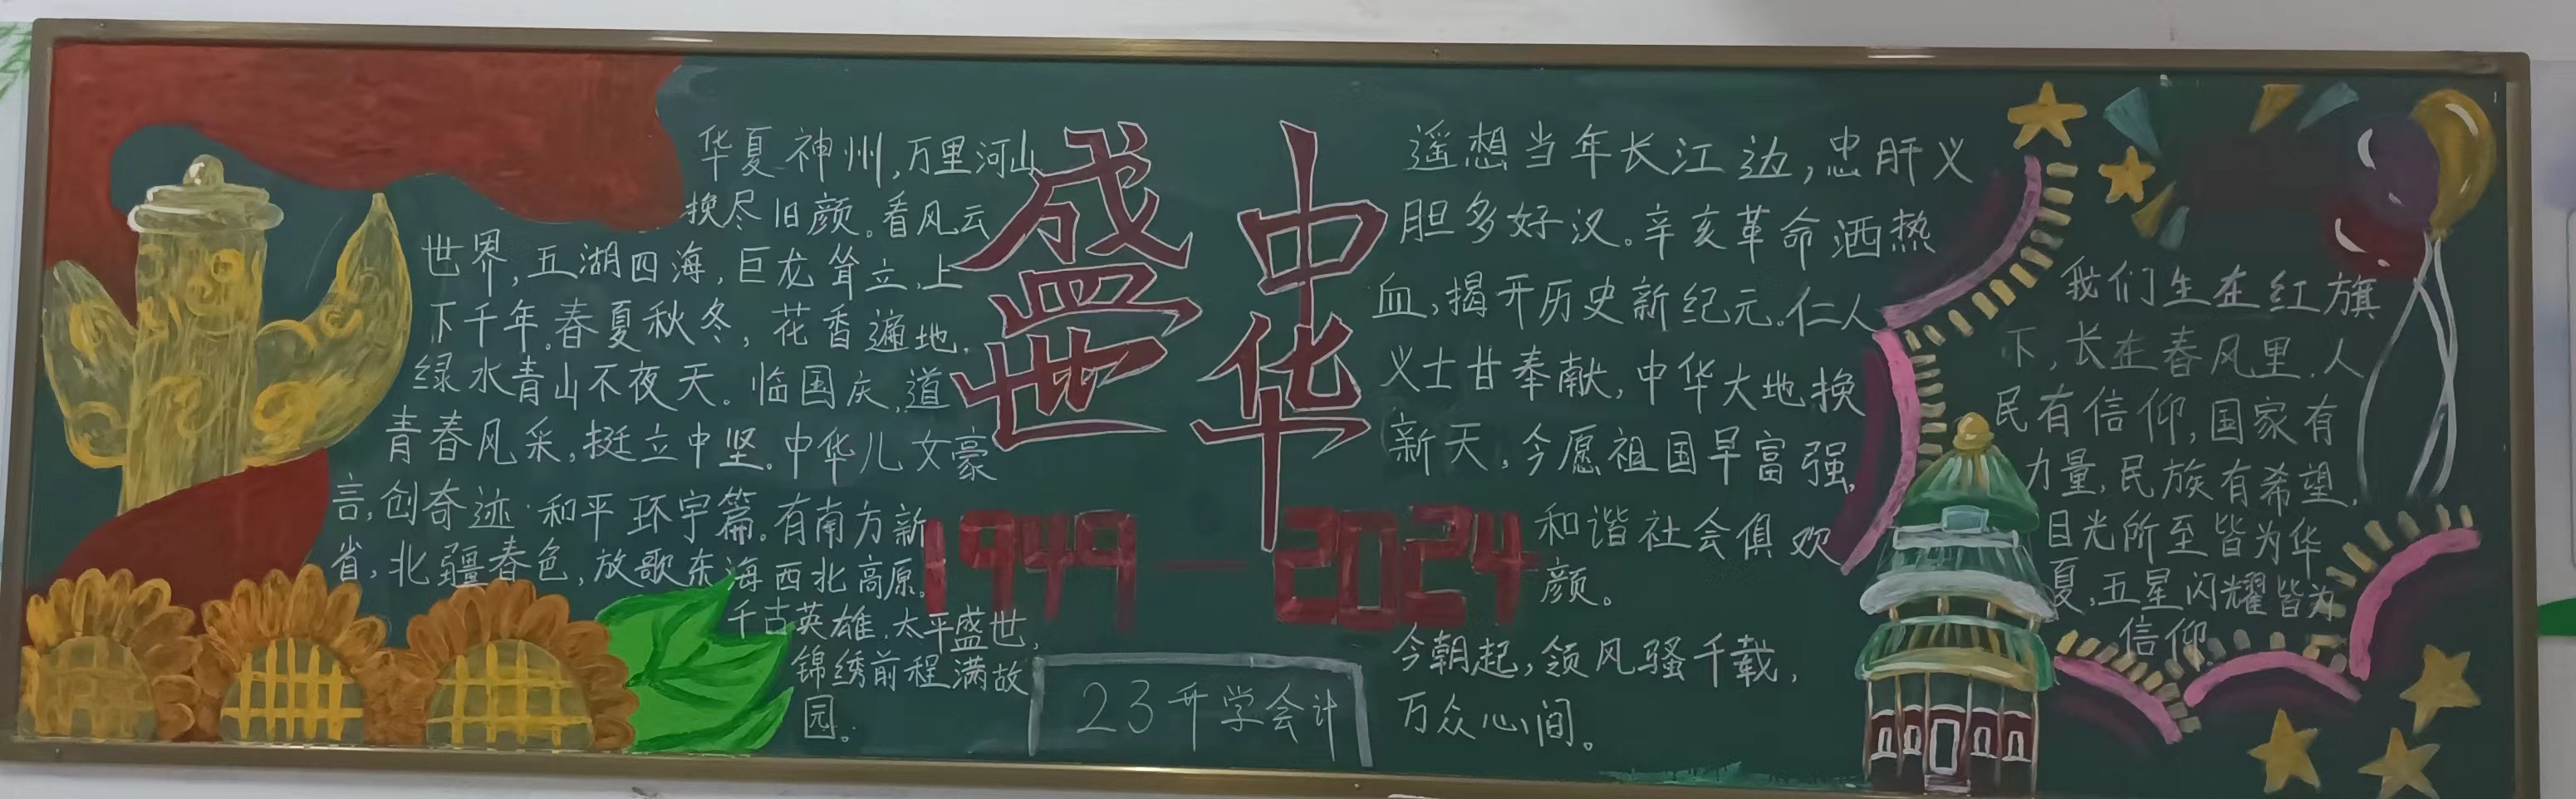 华夏神州,万里河山
挽尽旧颜。看风云
世界,五湖四海,巨龙耸立,上
下千年。春夏秋冬,花香遍地,
绿水青山不夜天。临国庆,道
青春风采,挺立中坚。中华儿女豪
言,创奇迹·和平环宇篇。有南方新
省,北疆春色,放歌东海西北高原。
千古英雄,太平盛世,
锦绣前程满故
园。
盛世
中华
1949—2024
23升学会计
遥想当年长江边,忠肝义
胆多好汉。辛亥革命洒热
血,揭开历史新纪元。仁人
义士甘奉献,中华大地换
新天,今愿祖国早富强,
和谐社会俱欢
颜。
今朝起,领风骚千载,
万众心间。
我们生在红旗
下,长在春风里,人
民有信仰,国家有
力量,民族有希望,
目光所至皆为华
夏,五星闪耀皆为
信仰.